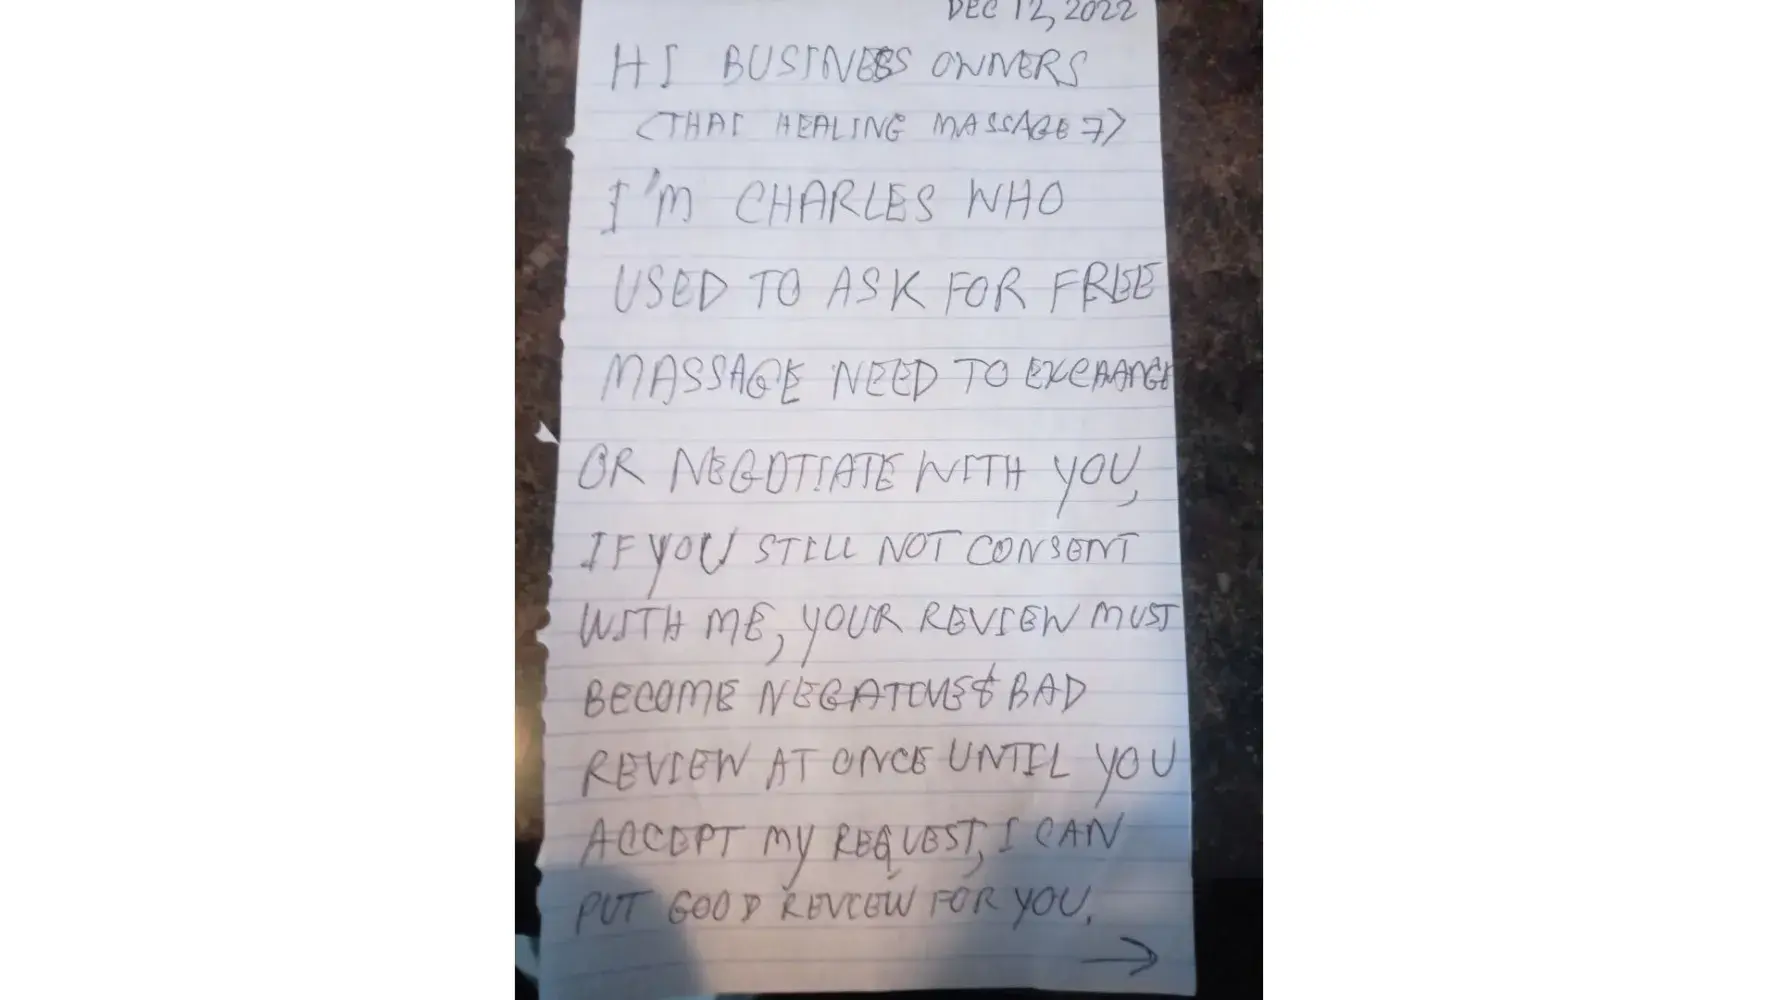 DEC 12, 2022
HI BUSINESS OWNERS
(THAI HEALING MASSAGE 7)
I'M CHARLES WHO
USED TO ASK FOR FREE
MASSAGE NEED TO EXCHANGE
OR NEGOTIATE WITH YOU,
IF YOU STILL NOT CONSENT
WITH ME, YOUR REVIEW MUST
BECOME NEGATIVE & BAD
REVIEW AT ONCE UNTIL YOU
ACCEPT MY REQUEST, I CAN
PUT GOOD REVIEW FOR YOU.
→